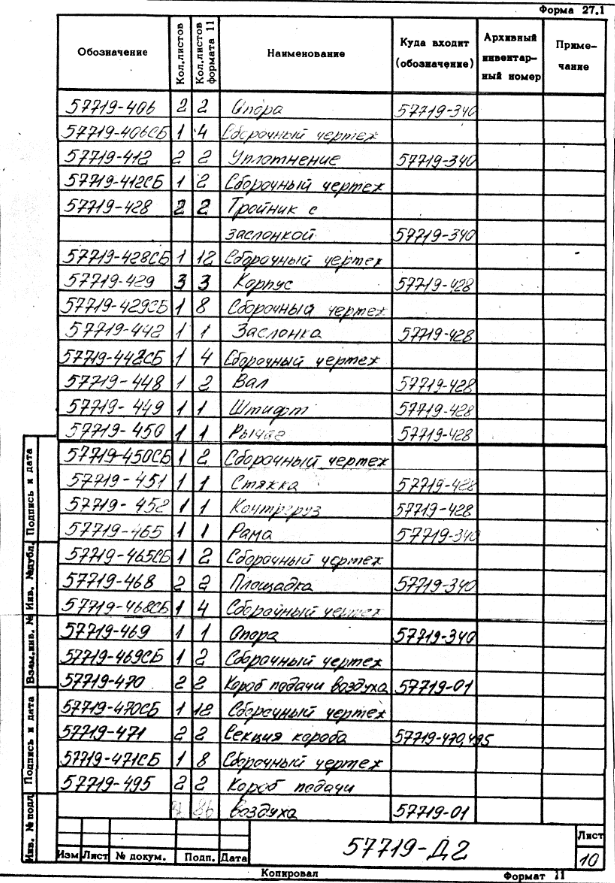 Форма 27.1
Обозначение Кол.листов Кол.листов формата 11 Наименование Куда входит (обозначение) Архивный инвентарный номер Примечание
57719-406 2 2 Опора 57719-340
57719-406СБ 1 4 Сборочный чертеж
57719-412 2 2 Уплотнение 57719-340
57719-412СБ 1 2 Сборочный чертеж
57719-428 2 2 Тройник с
заслонкой 57719-340
57719-428СБ 1 12 Сборочный чертеж
57719-429 3 3 Корпус 57719-428
57719-429СБ 1 8 Сборочный чертеж
57719-442 1 1 Заслонка 57719-428
57719-442СБ 1 4 Сборочный чертеж
57719-448 1 2 Вал 57719-428
57719-449 1 1 Штифт 57719-428
57719-450 1 1 Рычаг 57719-428
57719-450СБ 1 2 Сборочный чертеж
57719-451 1 1 Стяжка 57719-428
57719-452 1 1 Контргруз 57719-428
57719-465 1 1 Рама 57719-340
57719-465СБ 1 2 Сборочный чертеж
57719-468 2 2 Площадка 57719-340
57719-468СБ 1 4 Сборочный чертеж
57719-469 1 1 Опора 57719-340
57719-469СБ 1 2 Сборочный чертеж
57719-470 2 2 Короб подачи воздуха 57719-01
57719-470СБ 1 12 Сборочный чертеж
57719-471 2 2 Секция короба 57719-470,495
57719-471СБ 1 8 Сборочный чертеж
57719-495 2 2 Короб подачи
воздуха 57719-01
Инв. № подл. Подпись и дата Взам.инв. № Инв. № дубл. Подпись и дата
Изм Лист № докум. Подп. Дата
57719-Д2
Лист
10
Копировал Формат 11